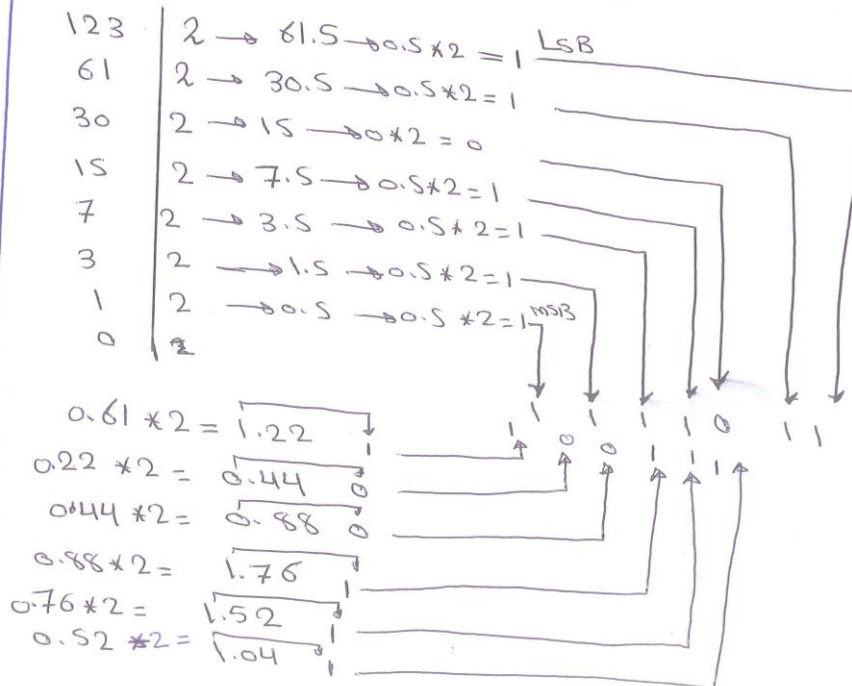 123 | 2 → 61.5 → 0.5*2 = 1 LSB
61 | 2 → 30.5 → 0.5*2 = 1
30 | 2 → 15 → 0*2 = 0
15 | 2 → 7.5 → 0.5*2 = 1
7 | 2 → 3.5 → 0.5*2 = 1
3 | 2 → 1.5 → 0.5*2 = 1
1 | 2 → 0.5 → 0.5*2 = 1 MSB
0 | 2
1 1 1 1 0 1 1
0.61 *2 = 1.22 1
1 0 0 1 1 1
0.22 *2 = 0.44 0
0.44 *2 = 0.88 0
0.88*2 = 1.76 1
0.76*2 = 1.52 1
0.52 *2 = 1.04 1